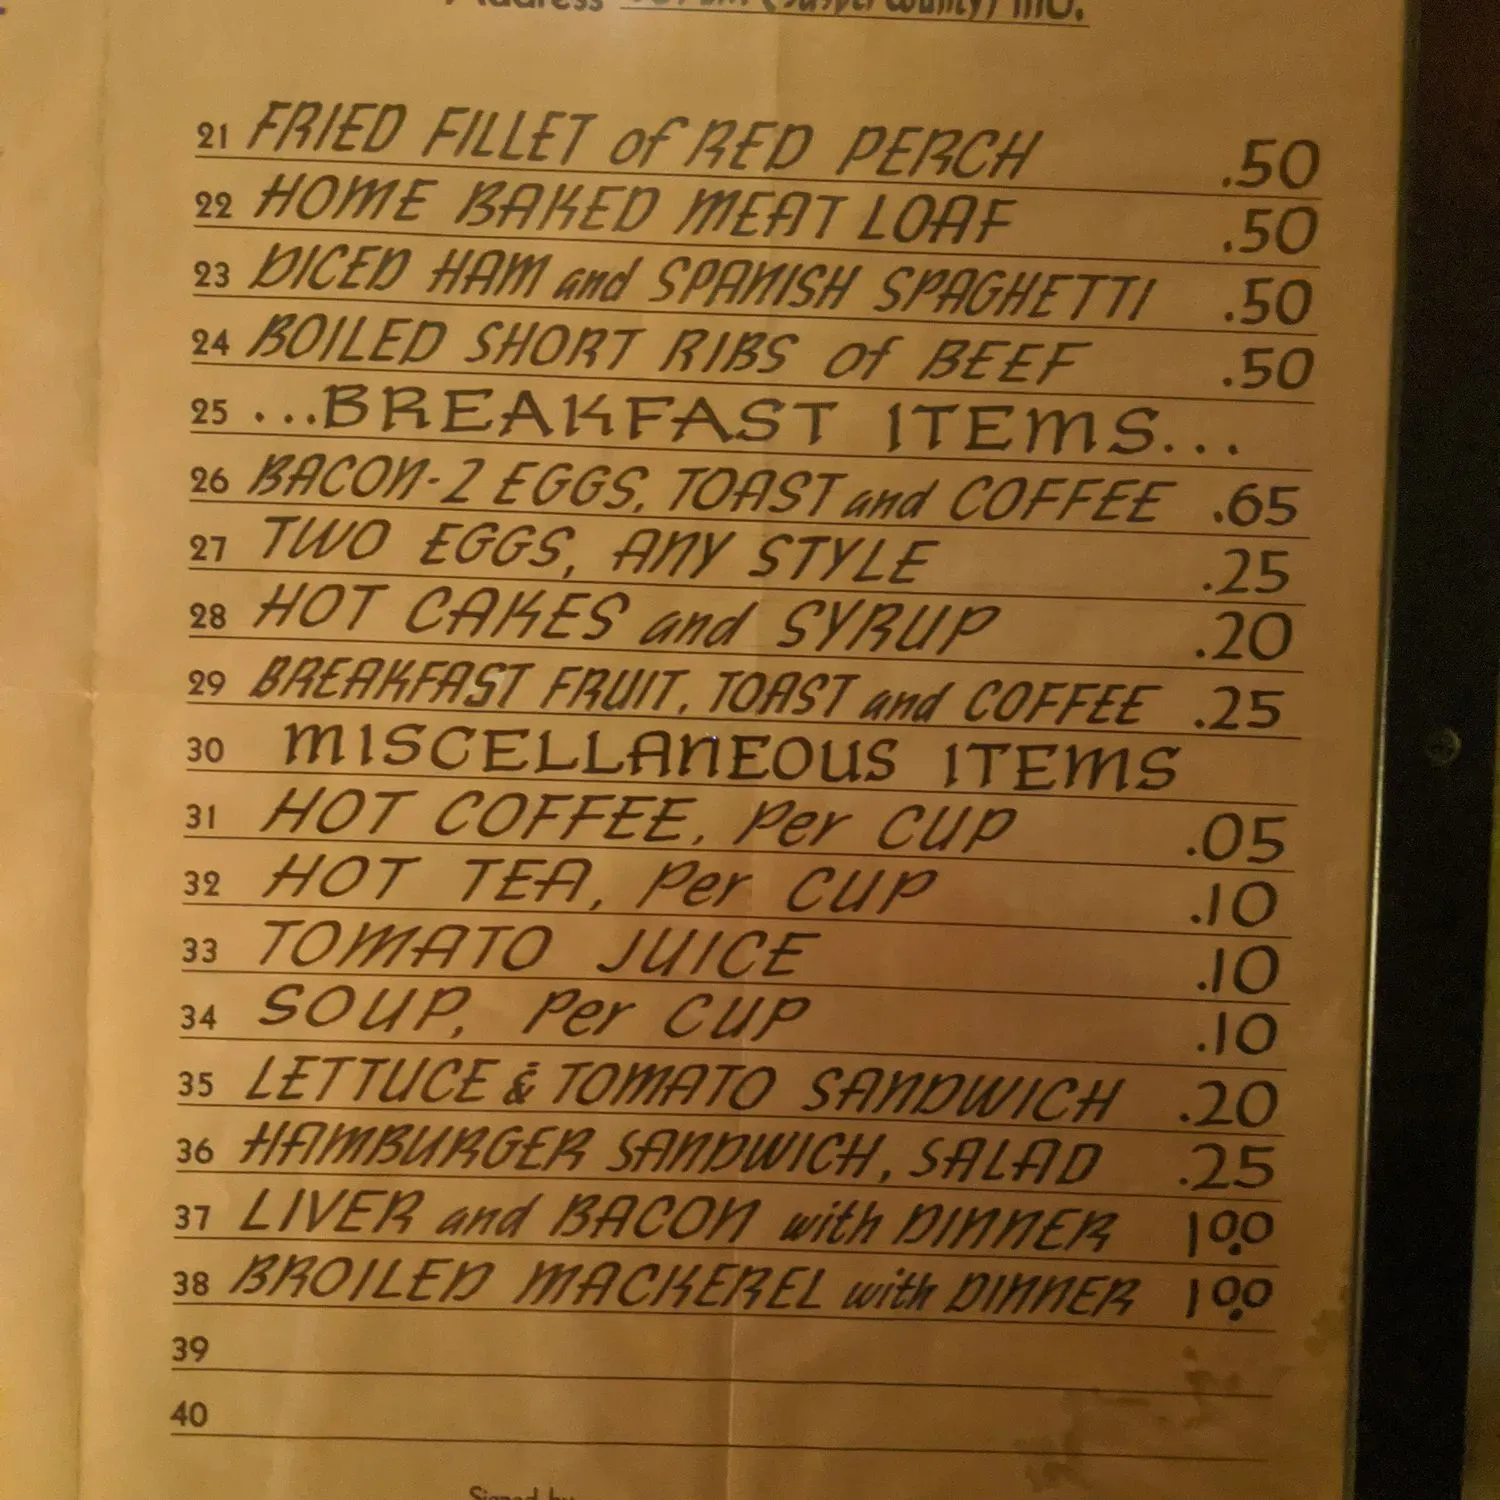 Address (Jasper County) MO.
21 FRIED FILLET of RED PERCH .50
22 HOME BAKED MEAT LOAF .50
23 DICED HAM and SPANISH SPAGHETTI .50
24 BOILED SHORT RIBS of BEEF .50
25 ...BREAKFAST ITEMS...
26 BACON-2 EGGS, TOAST and COFFEE .65
27 TWO EGGS, ANY STYLE .25
28 HOT CAKES and SYRUP .20
29 BREAKFAST FRUIT, TOAST and COFFEE .25
30 MISCELLANEOUS ITEMS
31 HOT COFFEE, Per CUP .05
32 HOT TEA, Per CUP .10
33 TOMATO JUICE .10
34 SOUP, Per CUP .10
35 LETTUCE & TOMATO SANDWICH .20
36 HAMBURGER SANDWICH, SALAD .25
37 LIVER and BACON with DINNER 1.00
38 BROILED MACKEREL with DINNER 1.00
39
40
Signed by